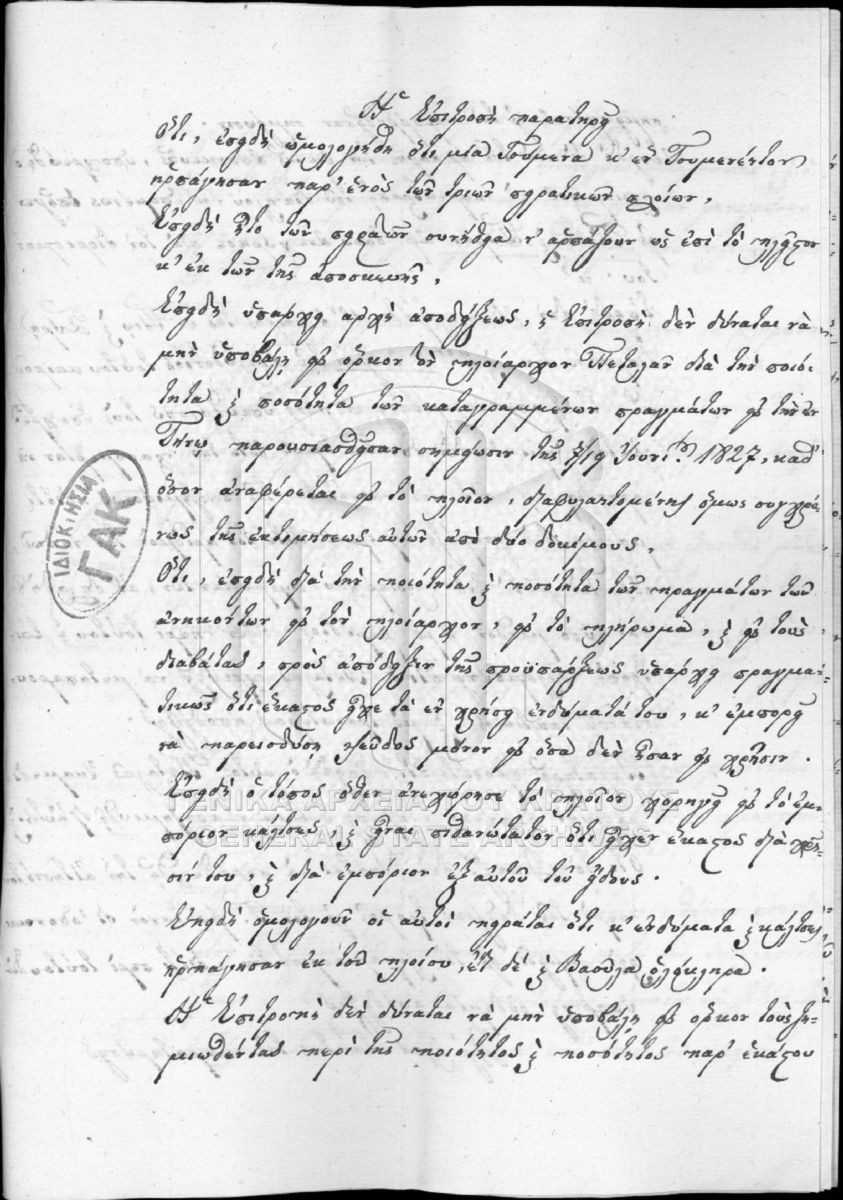 Ἡ Ἐπιτροπὴ παρατηρεῖ
Ὅτι, ἐπειδὴ ὡμολογήθη ὅτι μία Γούμενα κ' ἓν Γουμενέττον
ἡρπάγησαν παρ' ἑνὸς τῶν τριῶν πειρατικῶν πλοίων,
Ἐπειδὴ τῶν πειρατῶν συνήθεια ν' ἁρπάζουν ὡς ἐπὶ τὸ πλεῖστον
κ' ἐκ τῶν τῆς ἀποσκευῆς,
Ἐπειδὴ ὑπάρχει ἀρχὴ ἀποδείξεως, ἡ Ἐπιτροπὴ δὲν δύναται νὰ
μὴν ὑποβάλῃ εἰς ὅρκον τὸν πλοίαρχον Πεταλᾶν διὰ τὴν ποιό-
τητα καὶ ποσότητα τῶν καταγραμμένων πραγμάτων εἰς τὴν ἐν
Τήνῳ παρουσιασθεῖσαν σημείωσιν τῆς 7/19 Ἰουνίου 1827, καθ'
ὅσον ἀναφέρεται εἰς τὸ πλοῖον, διαφυλαττομένης ὅμως συγχρό-
νως τῆς ἐκτιμήσεως αὐτῶν ἀπὸ δύο δοκίμους.
Ὅτι, ἐπειδὴ διὰ τὴν ποιότητα καὶ ποσότητα τῶν πραγμάτων τῶν
ἀνηκόντων εἰς τὸν πλοίαρχον, εἰς τὸ πλήρωμα, καὶ εἰς τοὺς
διαβάτας, πρὸς ἀπόδειξιν τῆς προϋπάρξεως ὑπάρχει πραγμα-
τικῶς ὅτι ἕκαστος εἶχε τὰ ἐν χρήσει ἐνδύματά του, κ' ἐμπορεῖ
νὰ παρεισδύσῃ ψεῦδος μόνον εἰς ὅσα δὲν ἦσαν εἰς χρῆσιν.
Ἐπειδὴ ὁ τόπος ὅθεν ἀνεχώρησε τὸ πλοῖον χορηγεῖ εἰς τὸ ἐμ-
πόριον κάλτσες, καὶ εἶναι πιθανώτατον ὅτι εἶχεν ἕκαστος διὰ χρῆ-
σίν του, καὶ διὰ ἐμπόριον ἐξ αὐτοῦ τοῦ εἴδους.
Ἐπειδὴ ὁμολογοῦν οἱ αὐτοὶ πειραταὶ ὅτι κ' ἐνδύματα καὶ κάλτσες
ἡρπάγησαν ἐκ τοῦ πλοίου, ἔτι δὲ καὶ Βαοῦλα ὁλόκληρα.
Ἡ Ἐπιτροπὴ δὲν δύναται νὰ μὴν ὑποβάλῃ εἰς ὅρκον τοὺς ζη-
μιωθέντας περὶ τῆς ποιότητος καὶ ποσότητος παρ' ἑκάστου
ΙΔΙΟΚΤΗΣΙΑ
ΓΑΚ
ΓΕΝΙΚΑ ΑΡΧΕΙΑ ΤΟΥ ΚΡΑΤΟΥΣ
GENERAL STATE ARCHIVES